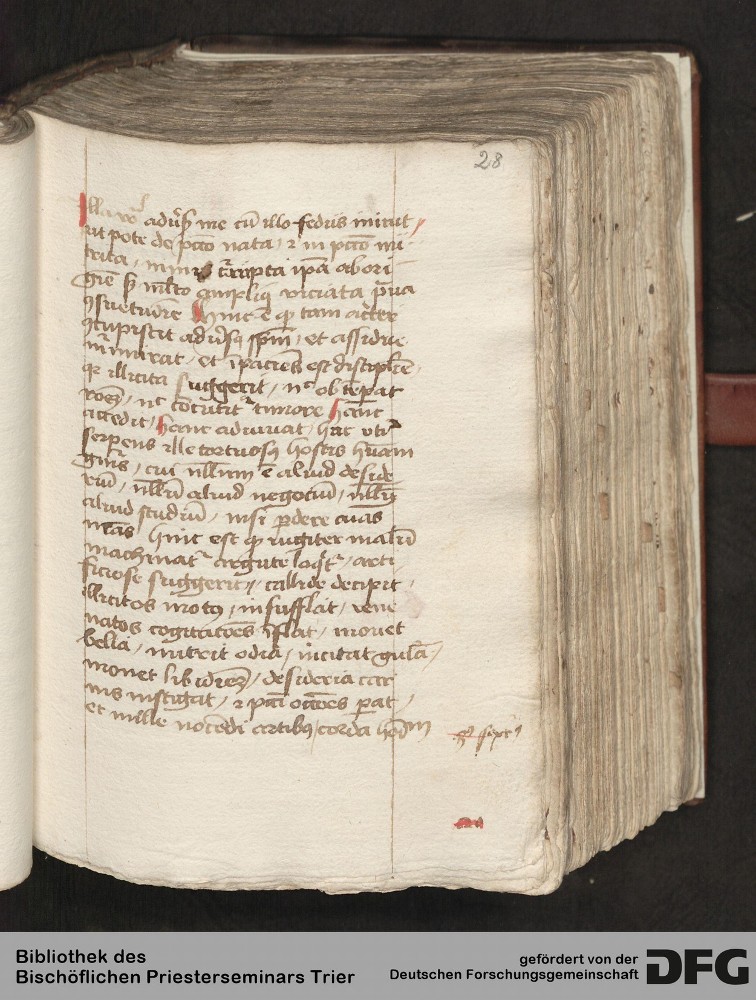 28
Illa vo adūsū me cū illo fedus iniuit
ut pote de pctō nata, ⁊ in pctō nu
trita, corrupta ipā ab ori
gīe sꝫ mlto amplius viciata praua
ꝯsuetudīe Hinc ē ꝙ tam acriter
ꝯcupiscit adūsus spm̄, et assidue
murmurat, et īpaciēs est discipline,
que illicita suggerit, nc obtēperat
rōni, nc cohibetur timore hanc
accedit, hanc adiuuat, hac utitur
serpens ille tortuosus hostis humani
gnis, cui nullum ē aliud deside
rium, nullū aliud negociū, nullū
aliud studiū, nisi pdere aīas
nrās hinc est ꝙ iugiter malū
machinat argute loqt, arti
ficiose suggerit, callide decipit,
illicitos motus insufflat, vene
natos cogitacōes īflat, mouet
bella, nutrit odia, incitat gulā,
mouet libidinē, desideria car
nis instigat, ⁊ pctī occōes parat,
et mille nocēdi artibus corda hoīm
Bibliothek des
Bischöflichen Priesterseminars Trier
gefördert von der
Deutschen Forschungsgemeinschaft
DFG